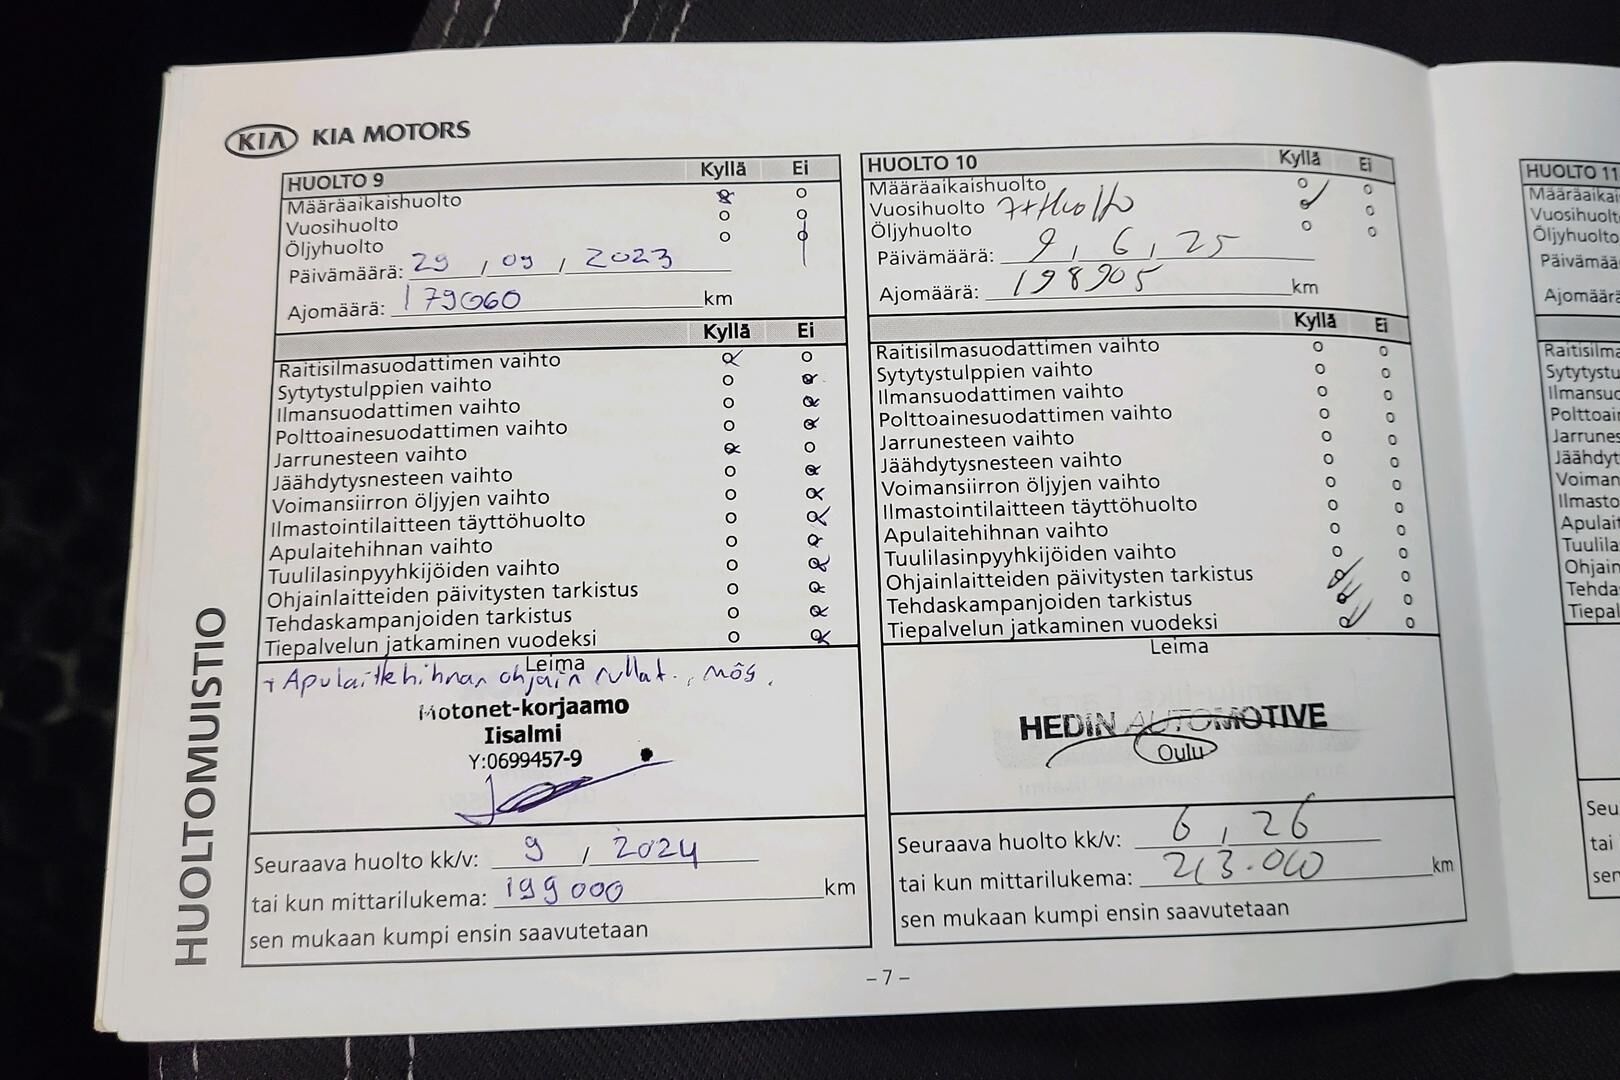 KIA KIA MOTORS
HUOLTOMUISTIO
HUOLTO 9 Kyllä Ei
Määräaikaishuolto
Vuosihuolto
Öljyhuolto
Päivämäärä: 29 / 09 / 2023
Ajomäärä: 179060 km
Kyllä Ei
Raitisilmasuodattimen vaihto
Sytytystulppien vaihto
Ilmansuodattimen vaihto
Polttoainesuodattimen vaihto
Jarrunesteen vaihto
Jäähdytysnesteen vaihto
Voimansiirron öljyjen vaihto
Ilmastointilaitteen täyttöhuolto
Apulaitehihnan vaihto
Tuulilasinpyyhkijöiden vaihto
Ohjainlaitteiden päivitysten tarkistus
Tehdaskampanjoiden tarkistus
Tiepalvelun jatkaminen vuodeksi
Leima
+ Apulaitehihnan ohjain rullat.
Motonet-korjaamo
Iisalmi
Y:0699457-9
Seuraava huolto kk/v: 9 / 2024
tai kun mittarilukema: 199 000 km
sen mukaan kumpi ensin saavutetaan
HUOLTO 10 Kyllä Ei
Määräaikaishuolto
Vuosihuolto 7+Huolto
Öljyhuolto
Päivämäärä: 9 , 6 , 25
Ajomäärä: 198905 km
Kyllä Ei
Raitisilmasuodattimen vaihto
Sytytystulppien vaihto
Ilmansuodattimen vaihto
Polttoainesuodattimen vaihto
Jarrunesteen vaihto
Jäähdytysnesteen vaihto
Voimansiirron öljyjen vaihto
Ilmastointilaitteen täyttöhuolto
Apulaitehihnan vaihto
Tuulilasinpyyhkijöiden vaihto
Ohjainlaitteiden päivitysten tarkistus
Tehdaskampanjoiden tarkistus
Tiepalvelun jatkaminen vuodeksi
Leima
HEDIN AUTOMOTIVE
Oulu
Seuraava huolto kk/v: 6 , 26
tai kun mittarilukema: 213.000 km
sen mukaan kumpi ensin saavutetaan
- 7 -
HUOLTO 11
Määräaikai
Vuosihuolt
Öljyhuolto
Päivämää
Ajomäärä
Raitisilma
Sytytystu
Ilmansuo
Polttoai
Jarrunes
Jäähdyt
Voiman
Ilmasto
Apulait
Tuulila
Ohjain
Tehda
Tiepal
Seu
tai
sen